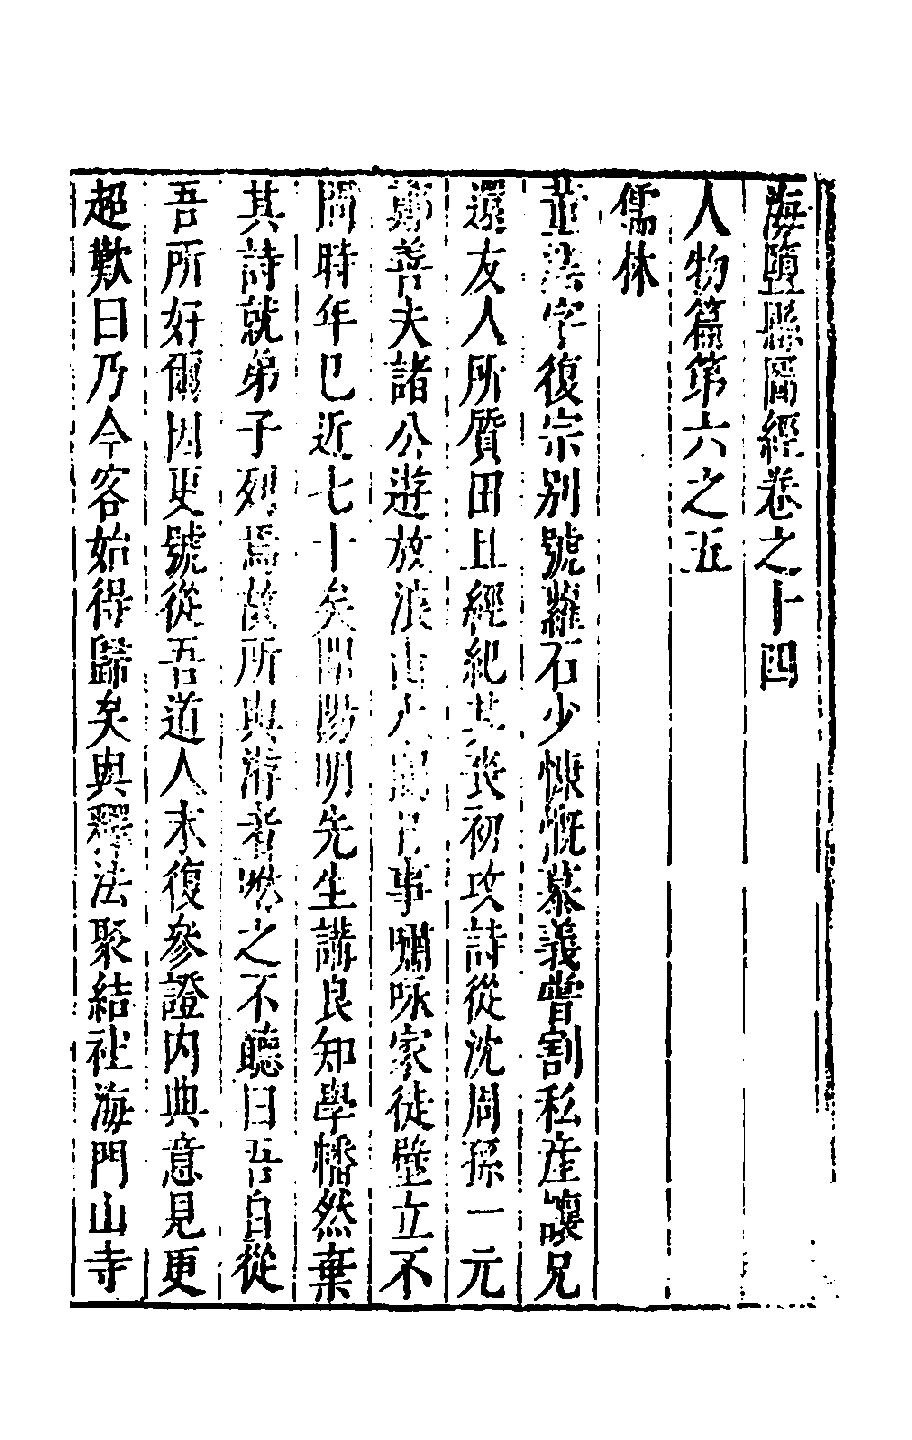 海鹽縣圖經卷之十四
人物篇第六之五
儒林
董澐字復宗別號蘿石少慷慨慕義嘗割私產讓兄
還友人所質田且經紀其喪初攻詩從沈周孫一元
鄭善夫諸公遊放浪山人間事嘯咏家徒壁立不
問時年已近七十矣聞陽明先生講良知學幡然棄
其詩就弟子列焉故所與游者咻之不聽曰吾自從
吾所好爾因更號從吾道人末復參證內典意見更
超歎曰乃今客始得歸矣與釋法聚結社海門山寺